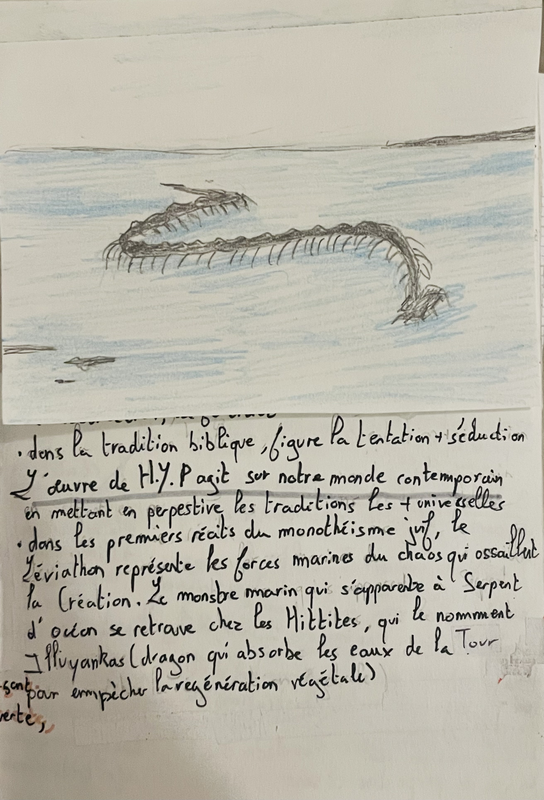 • dans la tradition biblique, figure la tentation + séduction
L'œuvre de H.Y.P agit sur notre monde contemporain
en mettant en perpestive les traditions les + universelles
• dans les premiers récits du monothéisme juif, le
Léviathan représente les forces marines du chaos qui assaillent
la Création. Le monstre marin qui s'apparente à Serpent
d'océan se retrouve chez les Hittites, qui le nomment
Illuyankas (dragon qui absorbe les eaux de la Tour
pour empêcher la regénération végétale)
sont
verte,